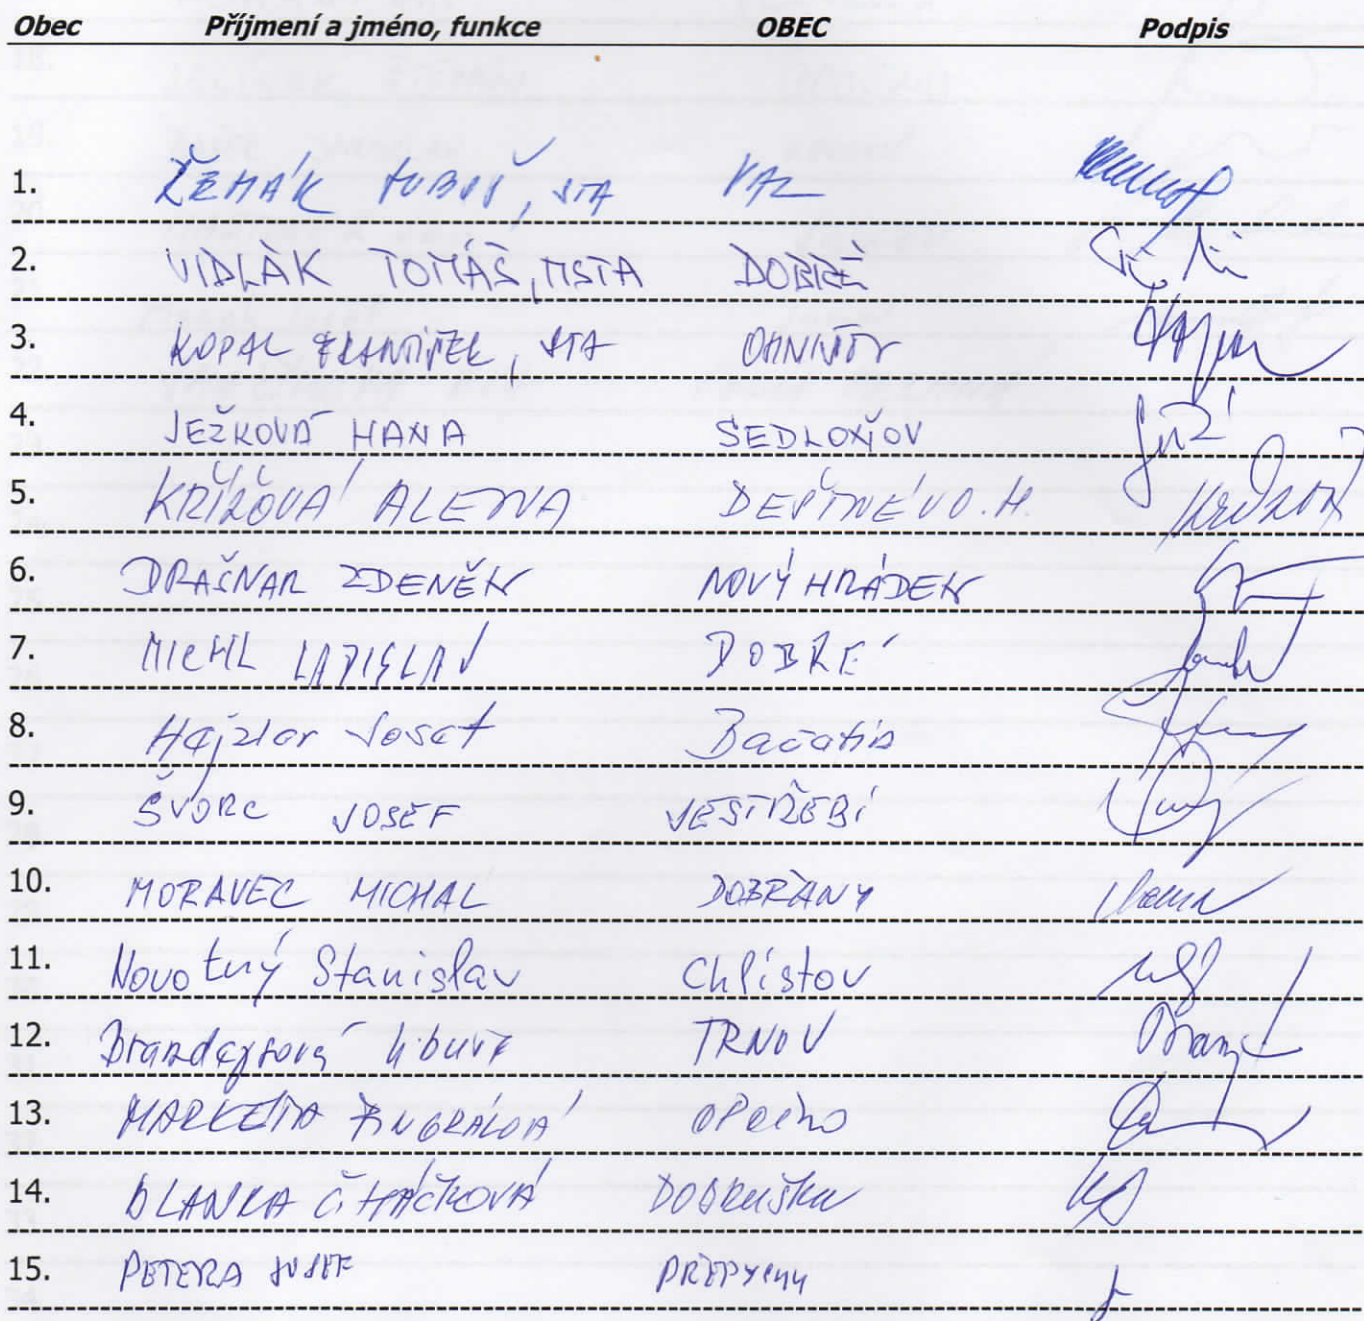 Obec Příjmení a jméno, funkce OBEC Podpis
1. ŘEHÁK LUBOŠ, STA VAL
2. VIDLÁK TOMÁŠ, MSTA DOBŘE
3. KOPAL FRANTIŠEK, STA OHNIŠOV
4. JEŽKOVÁ HANA SEDLOŇOV
5. KŘÍŽOVÁ ALENA DEŠTNÉ V O.H.
6. DRAŠNAR ZDENĚK NOVÝ HRÁDEK
7. MICHL LADISLAV DOBŘE
8. Hajzler Josef Bačetín
9. ŠVORC JOSEF JESTŘEBÍ
10. MORAVEC MICHAL DOBŘANY
11. Novotný Stanislav Chlístov
12. Brandejsová Libuše TRNOV
13. MARKÉTA Opočno
14. BLANKA ČIHÁČKOVÁ DOBRUŠKA
15. PETERA JOSEF PŘEPYCHY